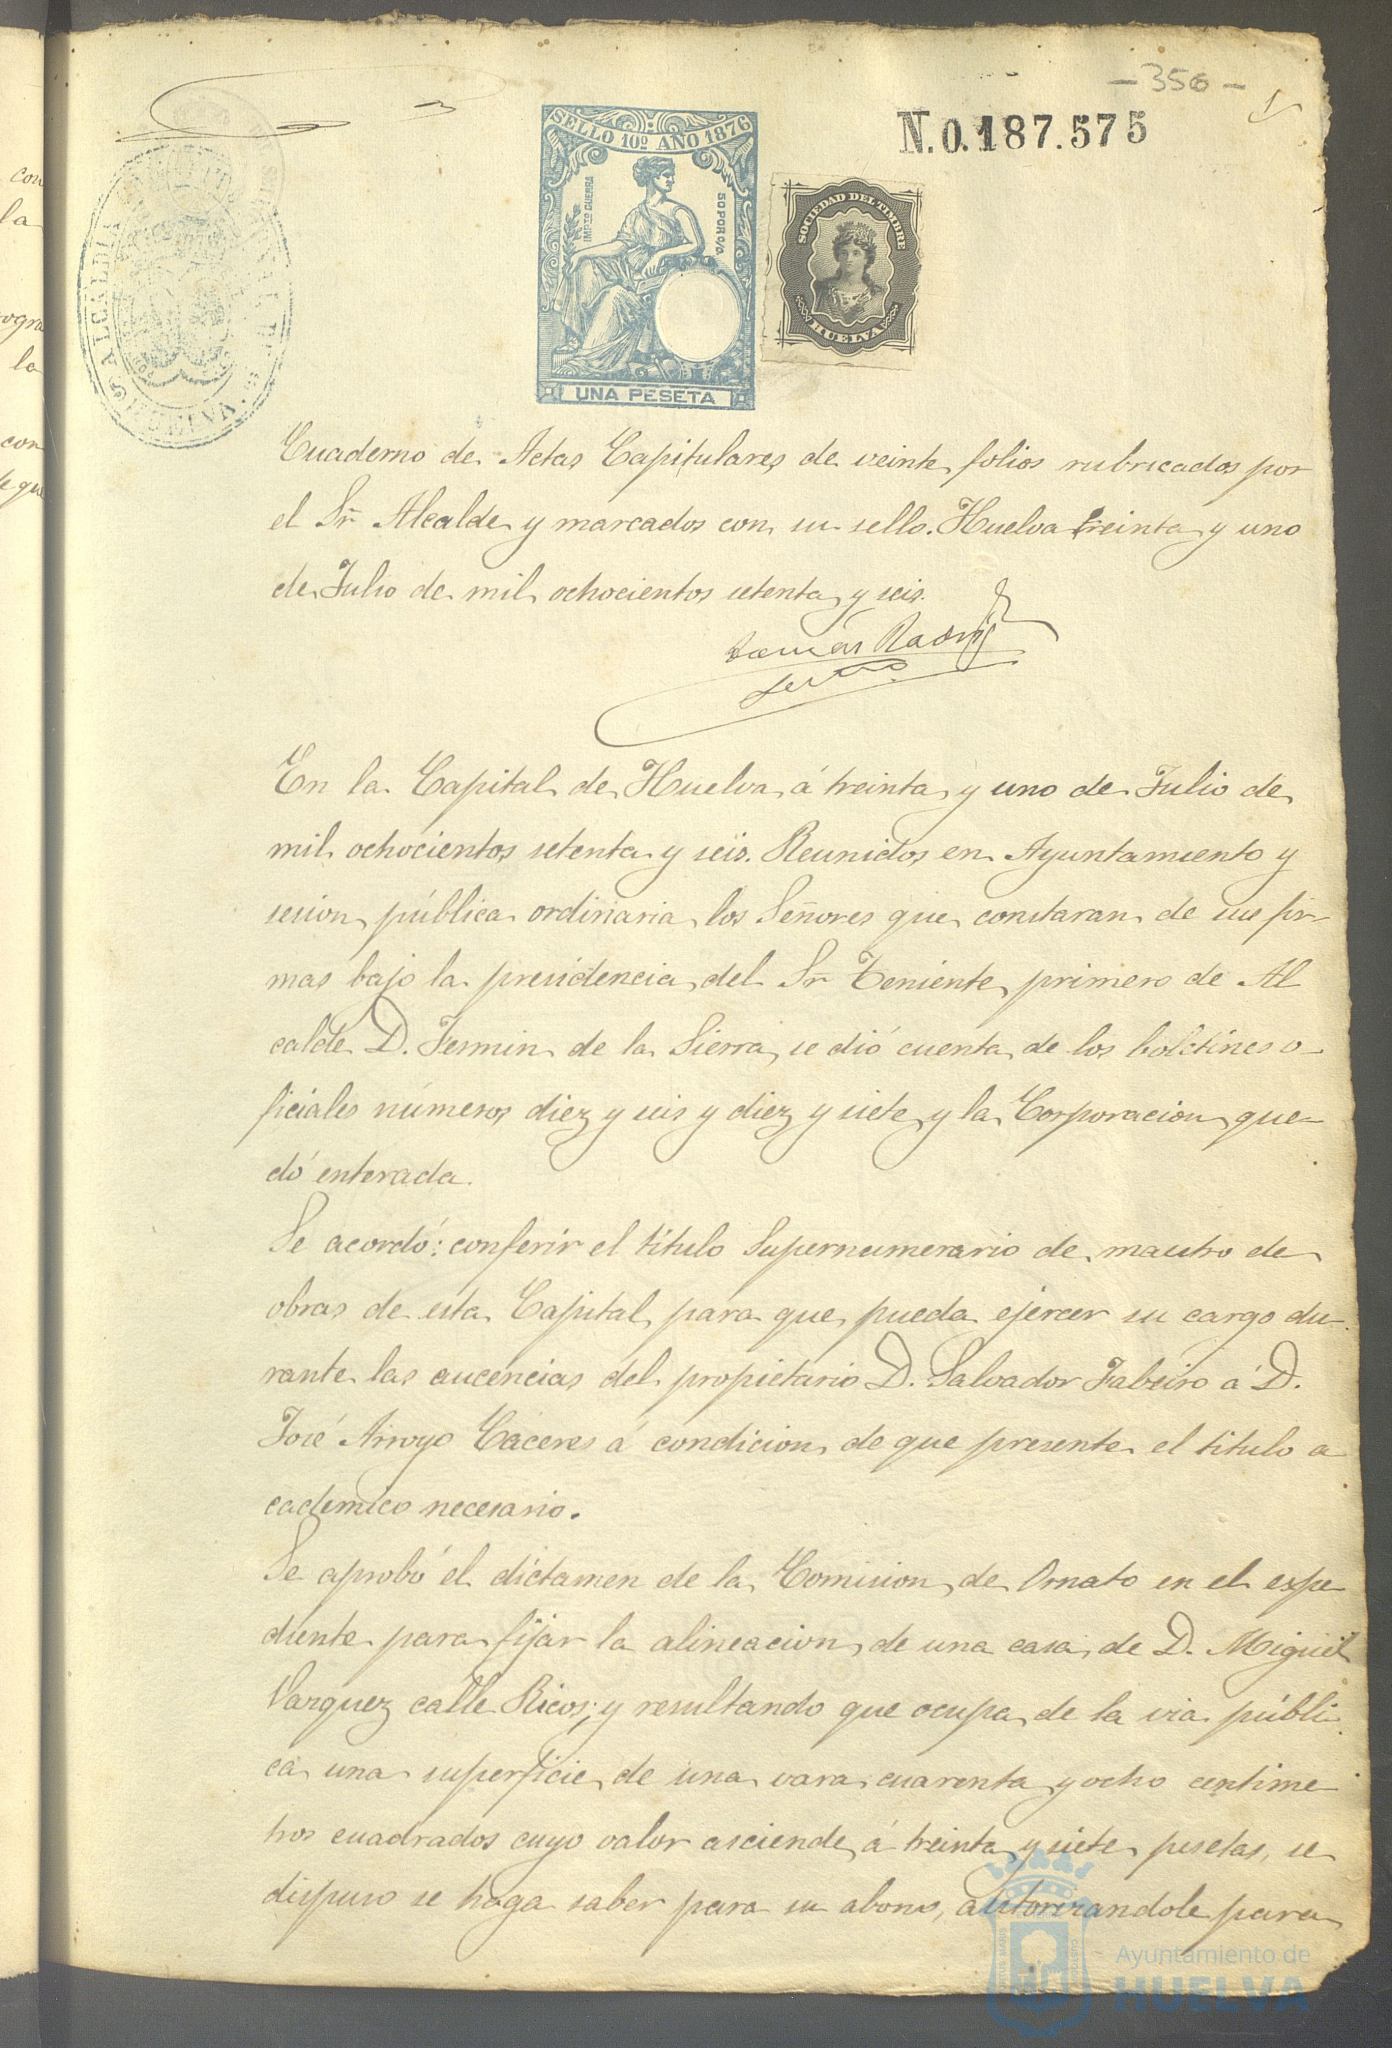 - 356 -
1
N.0.187.575
SELLO 10º AÑO 1876
IMPTO GUERRA
50 POR 0/0
UNA PESETA
SOCIEDAD DEL TIMBRE
HUELVA
ALCALDIA
HUELVA
con
la
la
con
Cuaderno de Actas Capitulares de veinte folios rubricados por
el Sr. Alcalde y marcados con su sello. Huelva treinta y uno
de Julio de mil ochocientos setenta y seis.
Tomás Rodrig
En la Capital de Huelva á treinta y uno de Julio de
mil ochocientos setenta y seis. Reunidos en Ayuntamiento y
sesion pública ordinaria los Señores que constaran de sus fir-
mas bajo la presidencia del Sr Teniente primero de Al
calde D. Fermin de la Sierra, se dió cuenta de los boletines o-
ficiales números diez y seis y diez y siete y la Corporacion que-
dó enterada.
Se acordó: conferir el título Supernumerario de maestro de
obras de esta Capital para que pueda ejercer su cargo du-
rante las aucencias del propietario D. Salvador Fabeiro á D.
José Arroyo Cáceres á condicion de que presente el titulo a
cadémico necesario.
Se aprobó el dictamen de la Comision de Ornato en el expe
diente para fijar la alineacion de una casa de D. Miguel
Vazquez calle Ricos; y resultando que ocupa de la via públi-
ca una superficie de una vara cuarenta y ocho centime-
tros cuadrados cuyo valor asciende á treinta y siete pesetas, se
dispuso se haga saber para su abono, autorizandole para
Ayuntamiento de
HUELVA